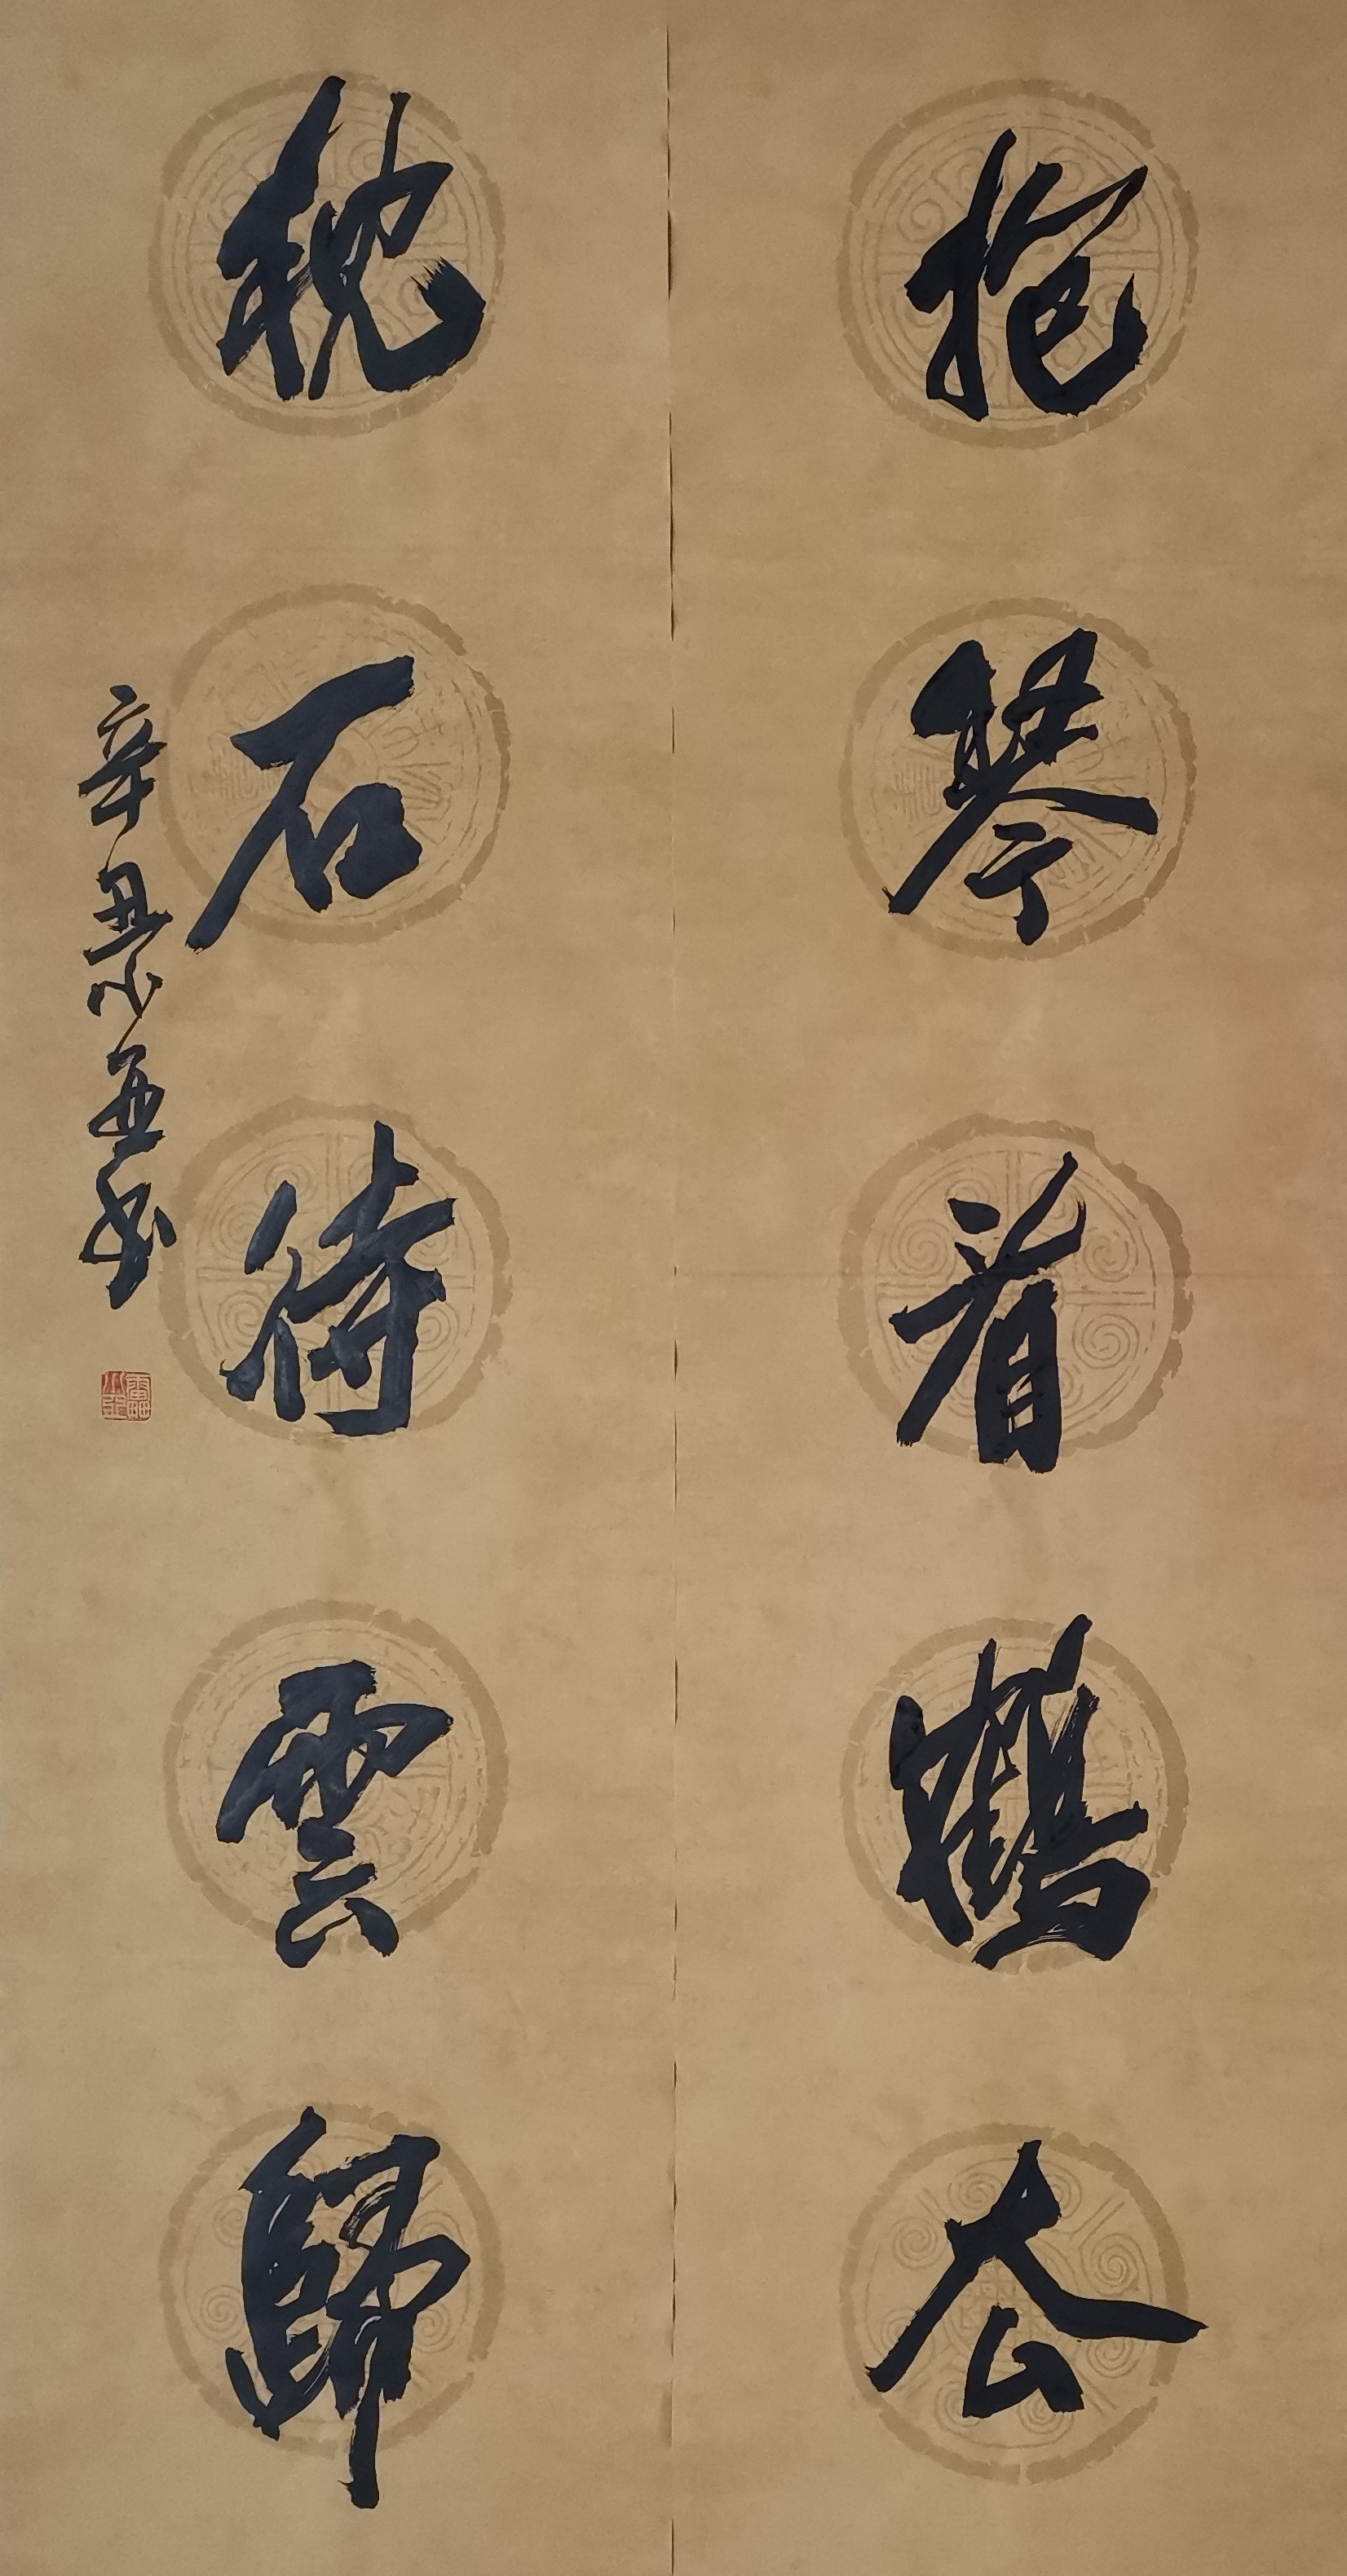 抱琴看鶴去
枕石待雲歸
辛丑小亚书